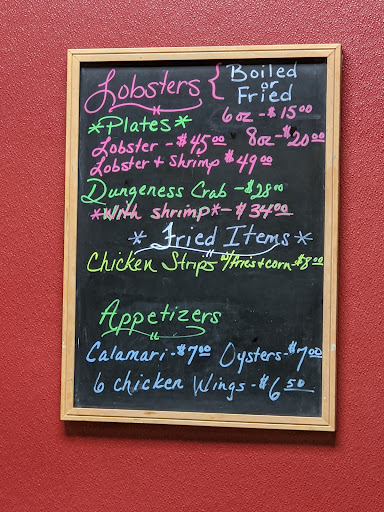 Lobsters { Boiled
or
Fried
6 oz - $15.00
*Plates*
Lobster - $45.00 8oz - $20.00
Lobster + Shrimp $49.00
Dungeness Crab - $28.00
*With shrimp* - $34.00
* Fried Items *
Chicken Strips w/fries + corn - $8.00
Appetizers
Calamari - $7.00 Oysters - $7.00
6 chicken Wings - $6.50